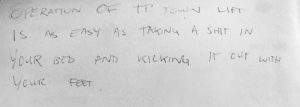 OPERATION OF TP TOWN LIFT
IS AS EASY AS TAKING A SHIT IN
YOUR BED AND KICKING IT OUT WITH
YOUR FEET